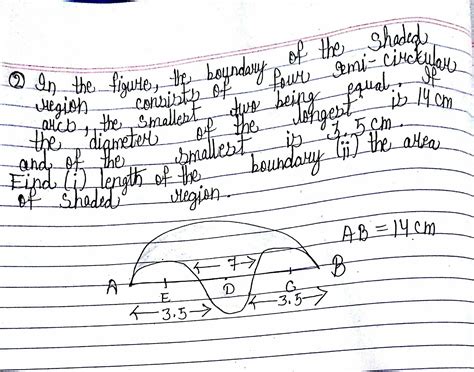 ② In the figure, the boundary of the Shaded
region consists of four semi-circular
arcs, the smallest two being equal. If
the diameter of the longest is 14 cm
and of the smallest is 3.5 cm.
Find (i) length of the boundary (ii) the area
of Shaded region.
AB = 14 cm
A
B
7
E
D
C
3.5
3.5